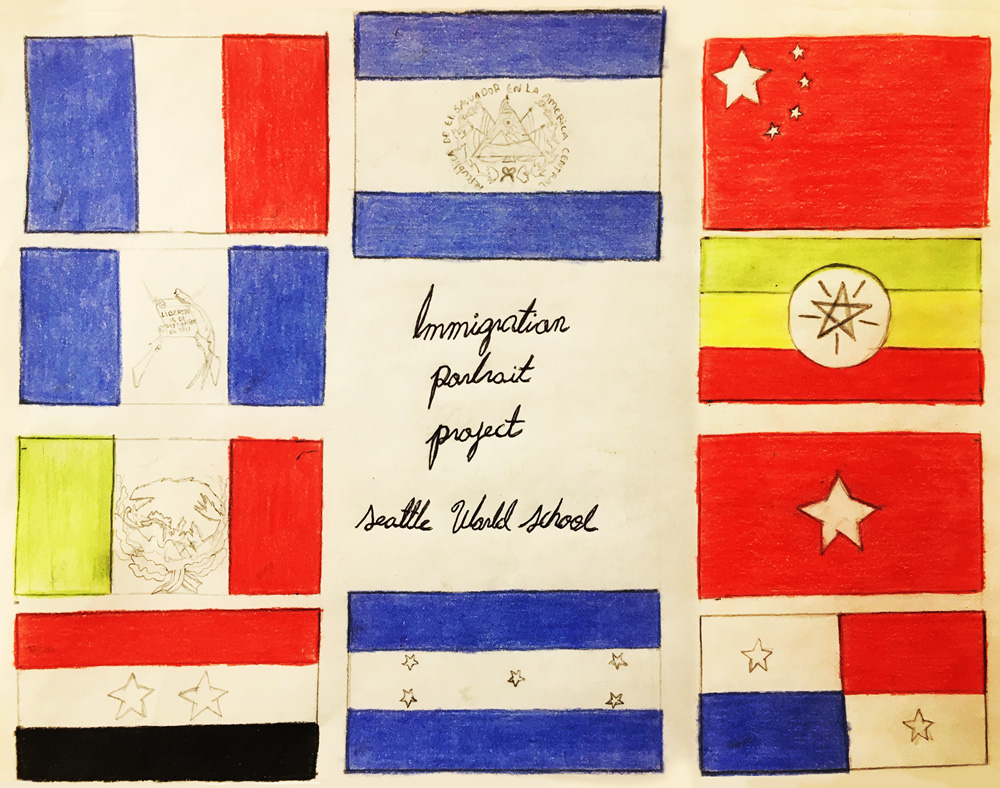 REPUBLICA DE EL SALVADOR EN LA AMERICA CENTRAL
LIBERTAD
15 DE
SEPTIEMBRE
DE 1821
Immigration
portrait
project
seattle World school